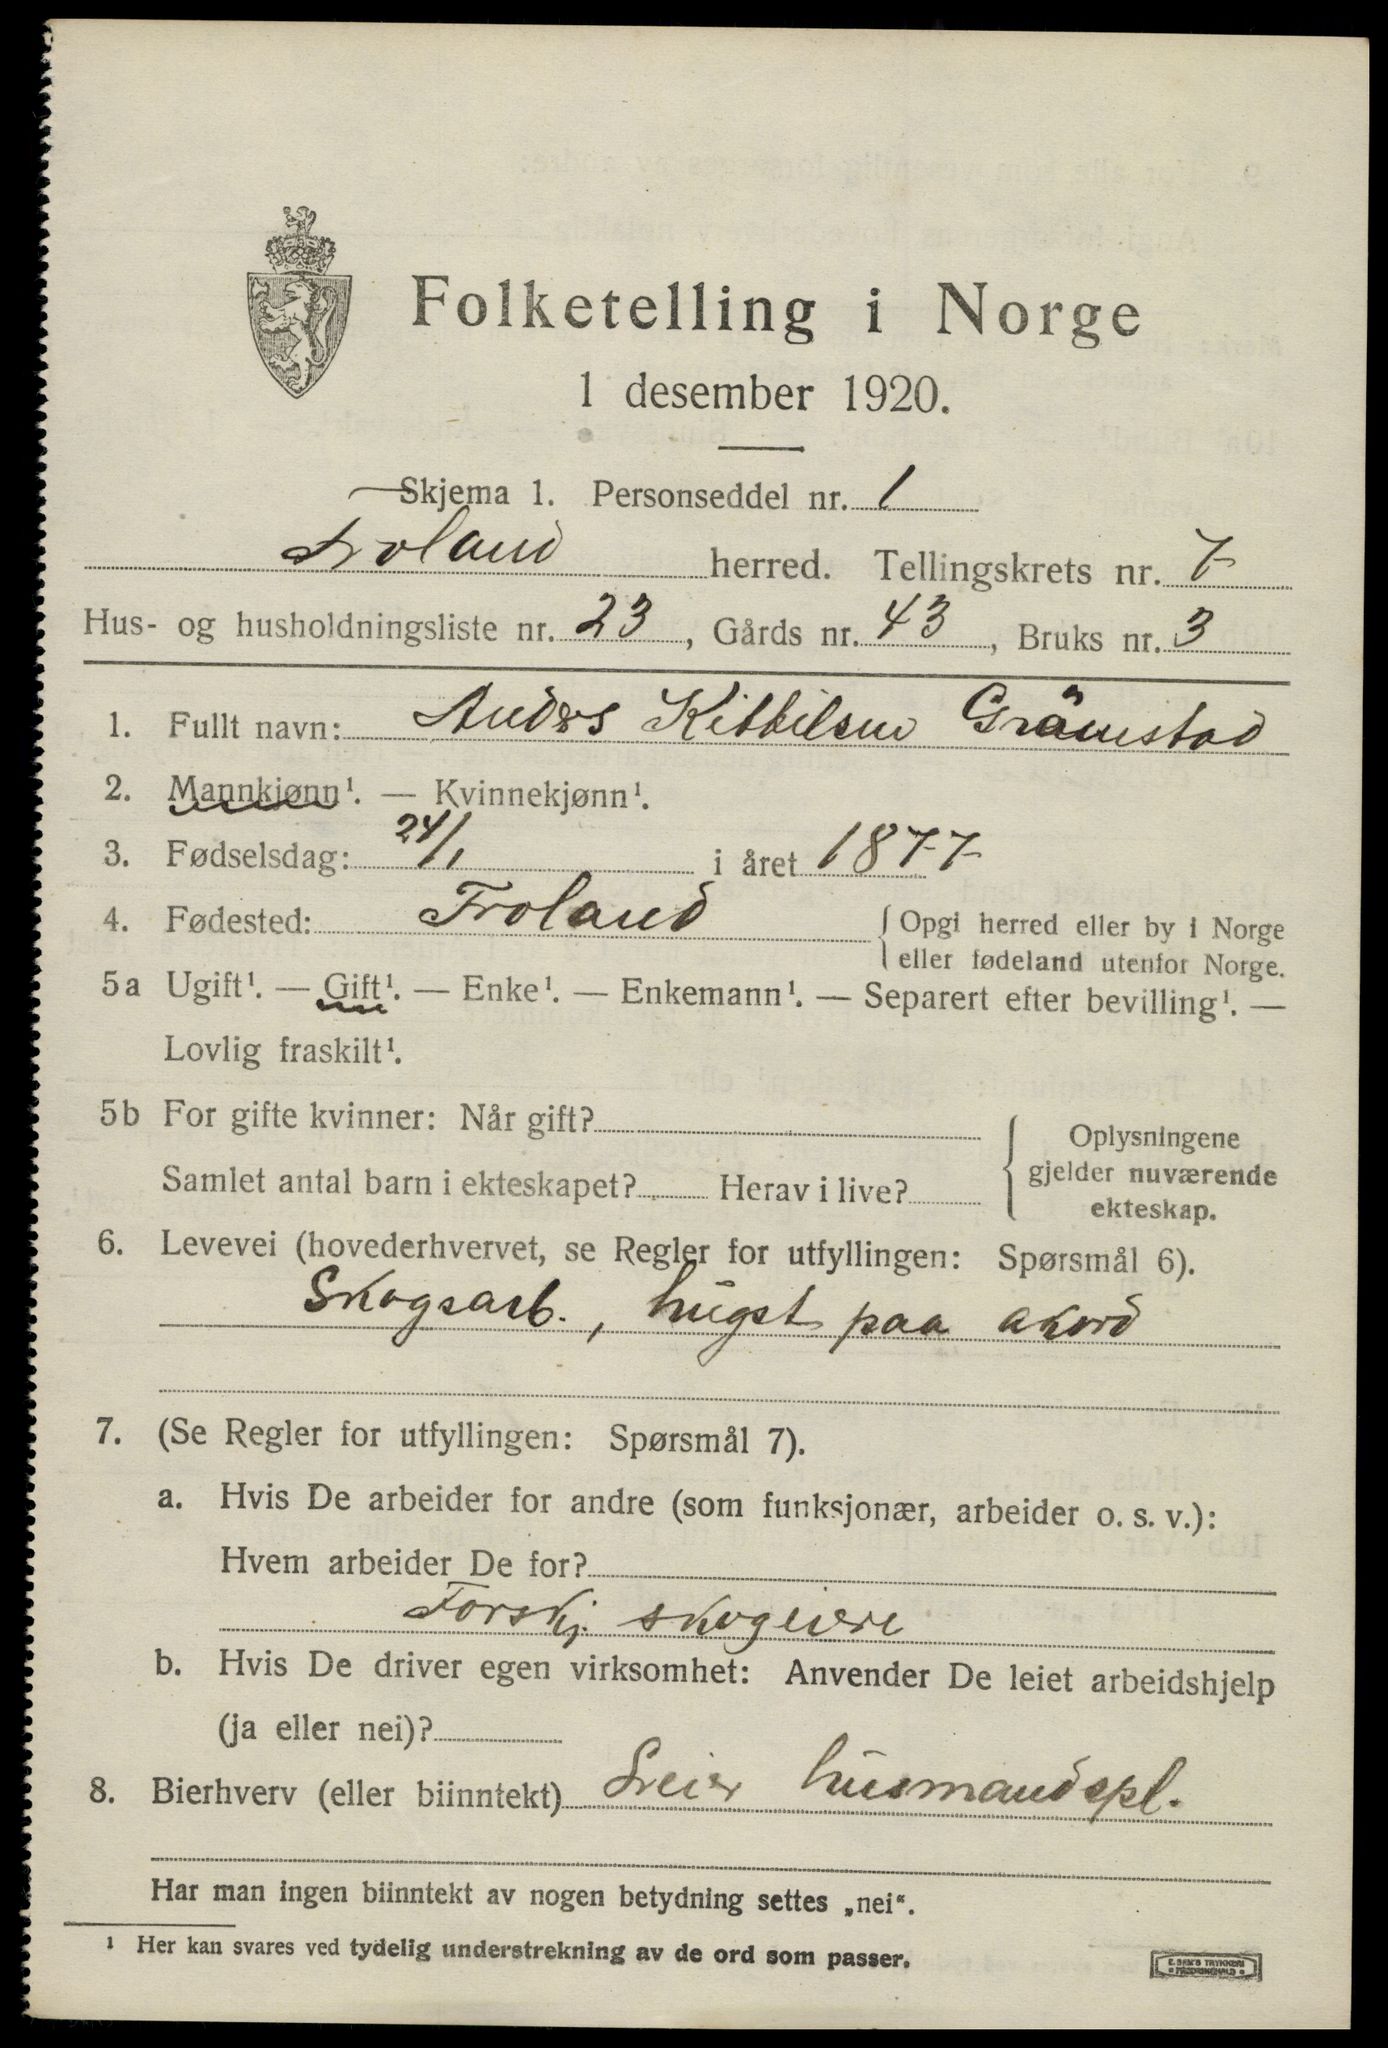 Folketelling i Norge
1 desember 1920.
Skjema 1. Personseddel nr. 1
Froland herred. Tellingskrets nr. 7
Hus- og husholdningsliste nr. 23, Gårds nr. 43, Bruks nr. 3
1. Fullt navn: Anders Kittilsen Gråmstad
2. Mannkjønn¹. — Kvinnekjønn¹.
3. Fødselsdag: 24/1 i året 1877
4. Fødested: Froland { Opgi herred eller by i Norge
eller fødeland utenfor Norge.
5a Ugift¹. — Gift¹. — Enke¹. — Enkemann¹. — Separert efter bevilling¹. —
Lovlig fraskilt¹.
5b For gifte kvinner: Når gift?
Samlet antal barn i ekteskapet? Herav i live?
{ Oplysningene
gjelder nuværende
ekteskap.
6. Levevei (hovederhvervet, se Regler for utfyllingen: Spørsmål 6).
Skogsarb., hugst paa akord
7. (Se Regler for utfyllingen: Spørsmål 7).
a. Hvis De arbeider for andre (som funksjonær, arbeider o. s. v.):
Hvem arbeider De for?
Forskj. skogeiere
b. Hvis De driver egen virksomhet: Anvender De leiet arbeidshjelp
(ja eller nei)?
8. Bierhverv (eller biinntekt) Leier husmandspl.
Har man ingen biinntekt av nogen betydning settes „nei“.
¹ Her kan svares ved tydelig understrekning av de ord som passer.
E. SEM'S TRYKKERI
FREDRIKSHALD